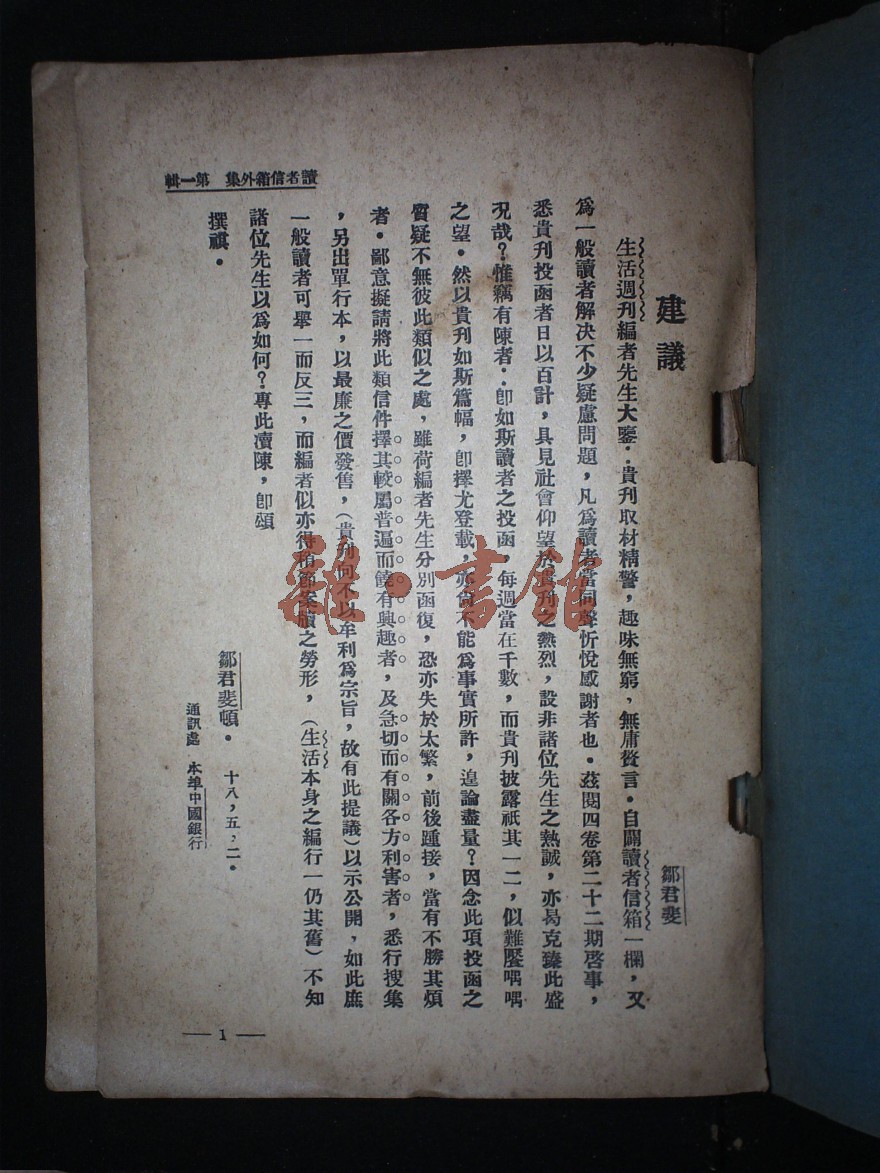 讀者信箱外集　第一輯
建議
鄒君斐
生活週刊編者先生大鑒：貴刊取材精警，趣味無窮，無庸贅言。自闢讀者信箱一欄，又
爲一般讀者解決不少疑慮問題，凡爲讀者當同聲忻悅感謝者也。茲閱四卷第二十二期啓事，
悉貴刊投函者日以百計，具見社會仰望於貴刊之熱烈，設非諸位先生之熱誠，亦曷克臻此盛
況哉？惟竊有陳者：卽如斯讀者之投函，每週當在千數，而貴刊披露祇其一二，似難饜喁喁
之望。然以貴刊如斯篇幅，卽擇尤登載，亦尙不能爲事實所許，遑論盡量？因念此項投函之
質疑不無彼此類似之處，雖荷編者先生分別函復，恐亦失於太繁，前後踵接，當有不勝其煩
者。鄙意擬請將此類信件擇其較屬普遍而饒有興趣者，及急切而有關各方利害者，悉行搜集
，另出單行本，以最廉之價發售，（貴刊向不以牟利爲宗旨，故有此提議）以示公開，如此庶
一般讀者可舉一而反三，而編者似亦得稍節案牘之勞形，（生活本身之編行一仍其舊）不知
諸位先生以爲如何？專此瀆陳，卽頌
撰祺。
鄒君斐頓。　十八，五，二。
通訊處　本埠中國銀行
— 1 —
雜·書館